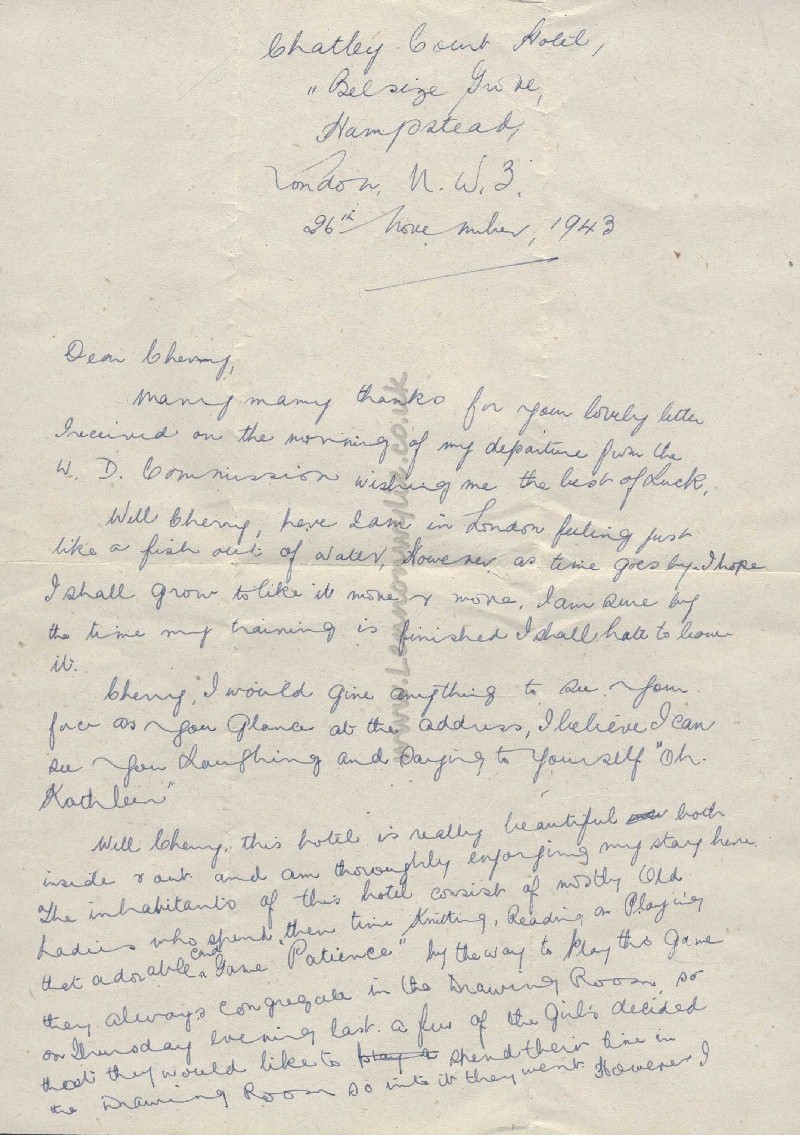 Chatley Court Hotel,
" Belsize Grove,
Hampstead,
London, N. W. 3.
26th November, 1943
Dear Cherry,
Many many thanks for your lovely letter
I received on the morning of my departure from the
W. D. Commission wishing me the best of Luck.
Well Cherry, here I am in London feeling just
like a fish out of water, However as time goes by I hope
I shall grow to like it more & more, I am sure by
the time my training is finished I shall hate to leave
it.
Cherry, I would give anything to see your
face as you Glance at the address, I believe I can
see you Laughing and saying to yourself "Oh.
Kathleen"
Well Cherry, this hotel is really beautiful both
inside & out and am thoroughly enjoying my stay here.
The inhabitants of this hotel consist of mostly Old
Ladies who spend their time Knitting, Reading or Playing
that adorable card Game "Patience" by the way to play this Game
they always congregate in the Drawing Room, so
on Thursday evening last. a few of the Girls decided
that they would like to play a spend their time in
the Drawing Room so into it they went However I
www.Lennonwylie.co.uk